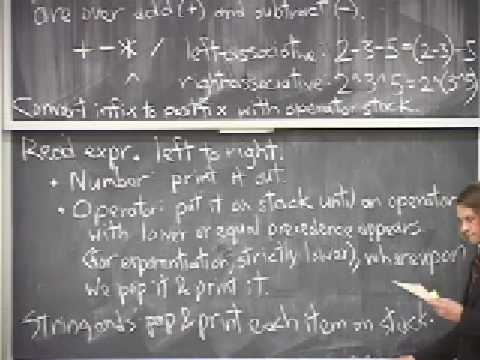 are over add (+) and subtract (-).
+ - * / left-associative: 2-3-5=(2-3)-5
^ right-associative: 2^3^5=2^(3^5)
Convert infix to postfix with operator stack.
Read expr. left to right.
• Number: print it out.
• Operator: put it on stack until an operator
with lower or equal precedence appears
(for exponentiation, strictly lower), whereupon
we pop it & print it.
String ends: pop & print each item on stack.